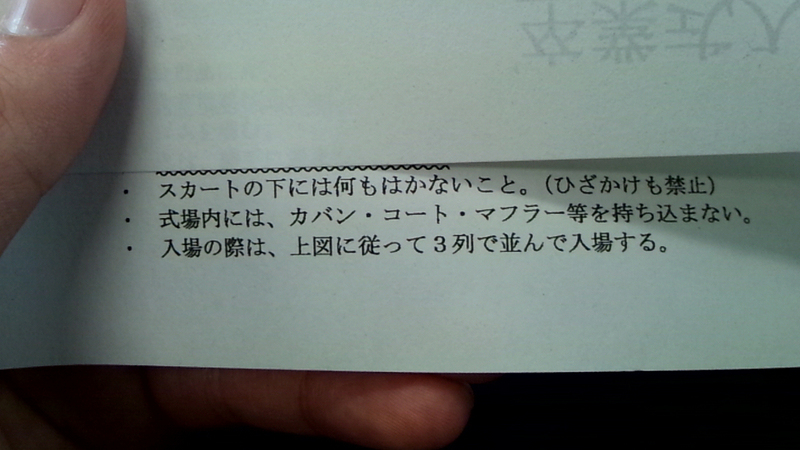 卒業式入
・ スカートの下には何もはかないこと。（ひざかけも禁止）
・ 式場内には、カバン・コート・マフラー等を持ち込まない。
・ 入場の際は、上図に従って３列で並んで入場する。